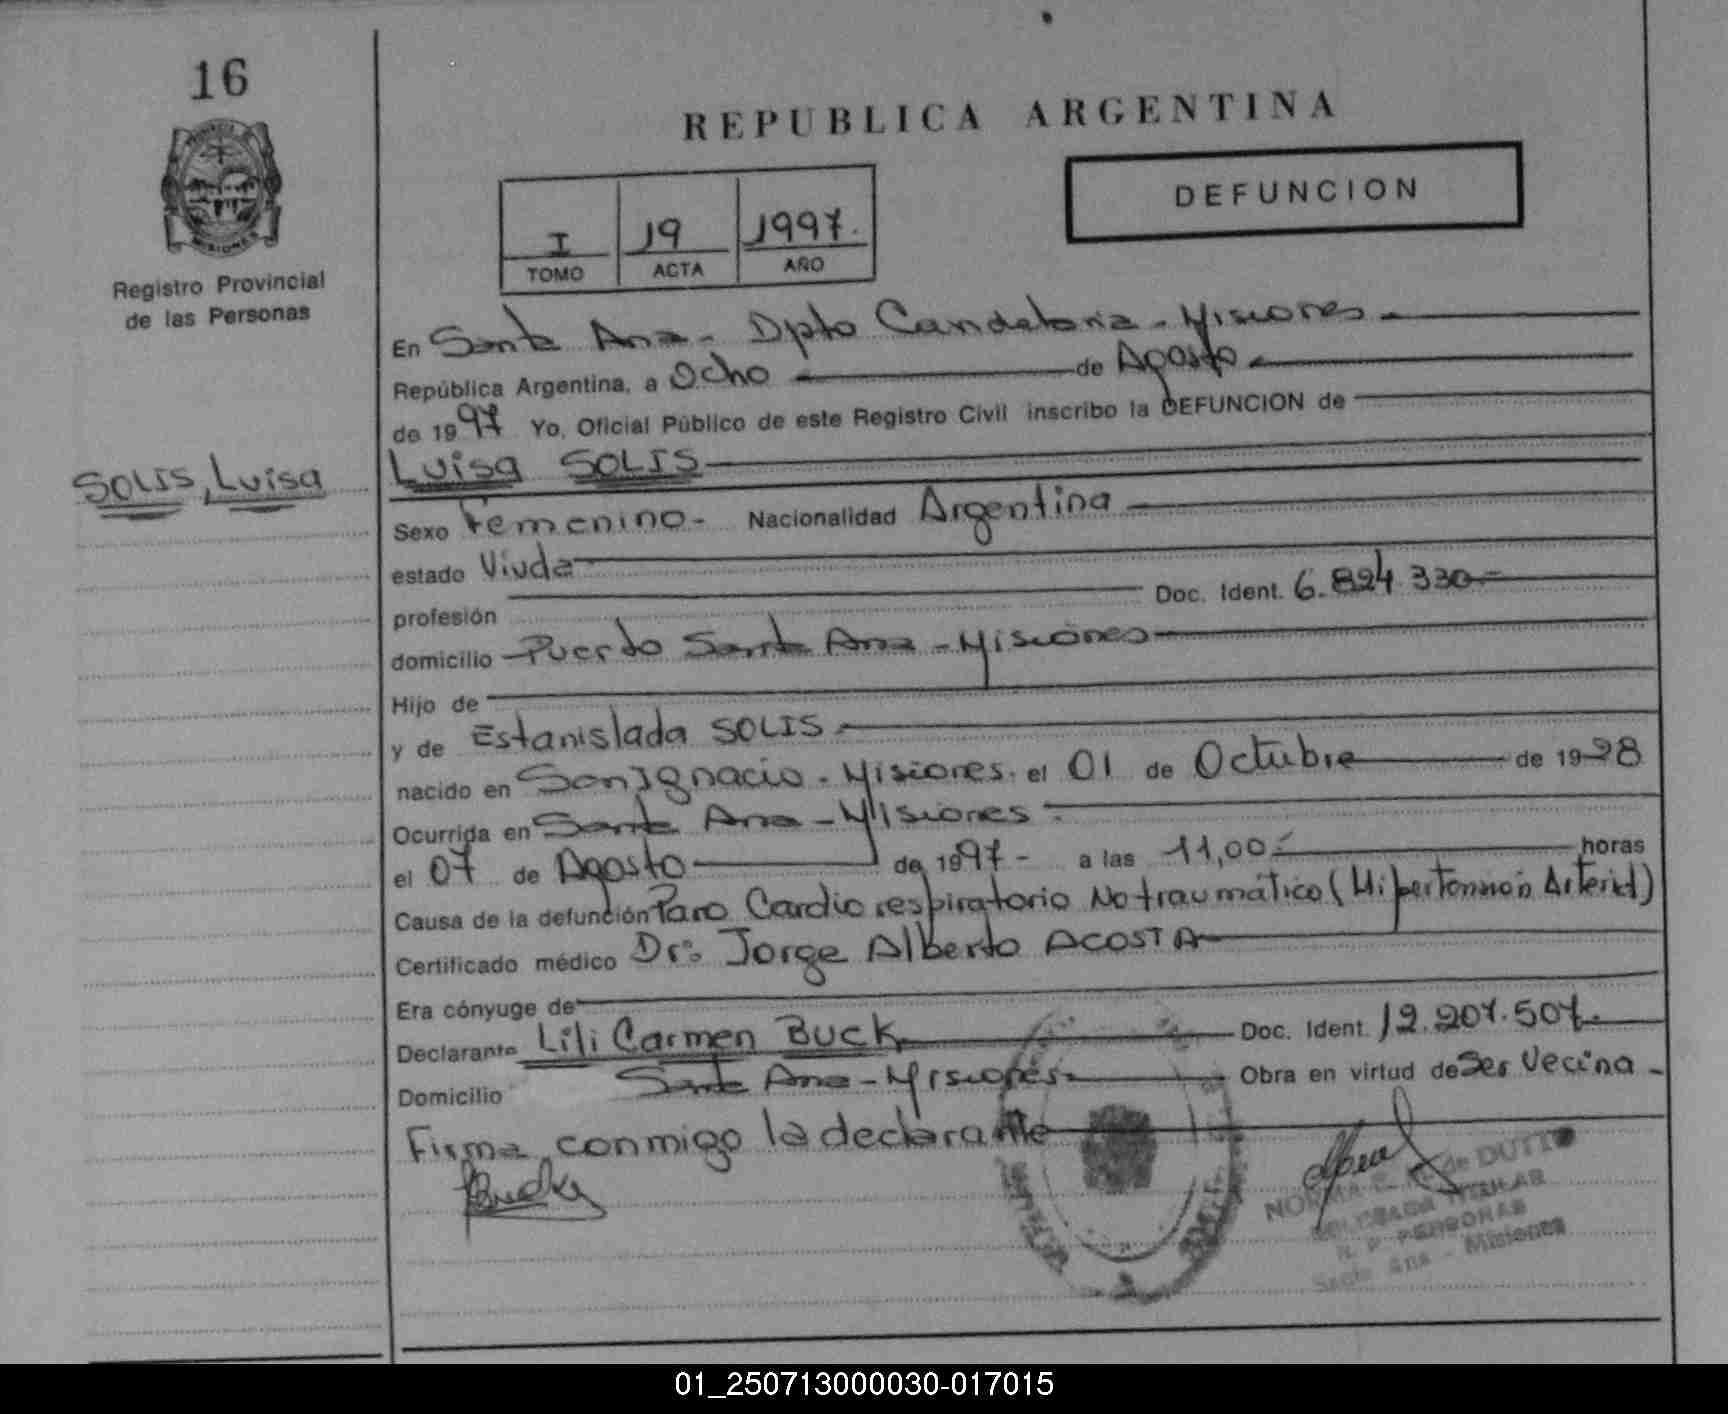 16
REPUBLICA ARGENTINA
DEFUNCION
I 19 1997.
TOMO ACTA AÑO
MISIONES
Registro Provincial
de las Personas
En Santa Ana - Dpto Candelaria - Misiones -
República Argentina, a Ocho de Agosto
de 1997 Yo, Oficial Público de este Registro Civil inscribo la DEFUNCION de
SOLIS, Luisa
Luisa SOLIS
Sexo Femenino - Nacionalidad Argentina
estado Viuda
profesión Doc. Ident. 6.824.330
domicilio Puerto Santa Ana - Misiones
Hijo de
y de Estanislada SOLIS
nacido en San Ignacio - Misiones. el 01 de Octubre de 1928
Ocurrida en Santa Ana - Misiones -
el 07 de Agosto de 1997 - a las 11,00 horas
Causa de la defunción Paro Cardio respiratorio No traumático (Hipertensión Arterial)
Certificado médico Dr: Jorge Alberto ACOSTA
Era cónyuge de
Declarante Lili Carmen BUCK Doc. Ident. 12.207.507.
Domicilio Santa Ana - Misiones Obra en virtud de Ser Vecina -
Firma conmigo la declarante
NORMA de DUTTO
DELEGADA TITULAR
R. P. PERSONAS
Santa Ana - Misiones
01_250713000030-017015